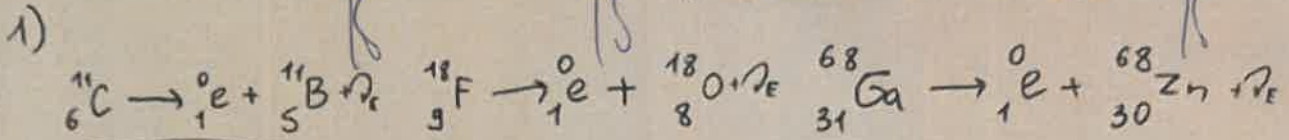 1)
¹¹₆C → ⁰₁e + ¹¹₅B + ν_E ¹⁸₉F → ⁰₁e + ¹⁸₈O + ν_E ⁶⁸₃₁Ga → ⁰₁e + ⁶⁸₃₀Zn + ν_E